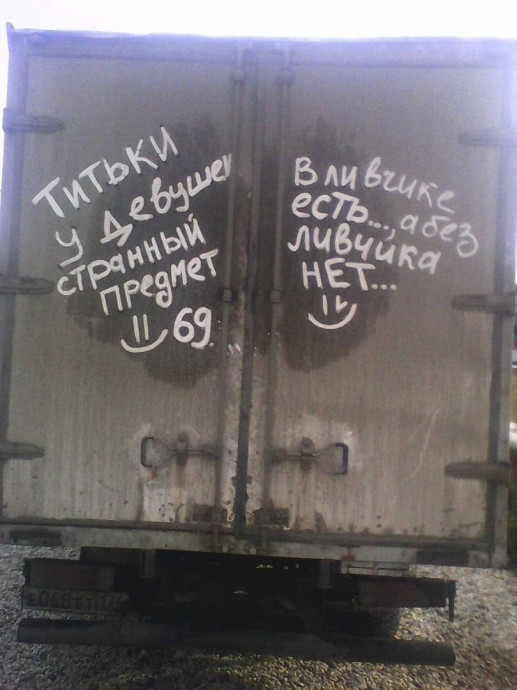 Титьки
у девушек
странный
предмет
69.
В ливчике
есть..., а без
ливчика
НЕТ...